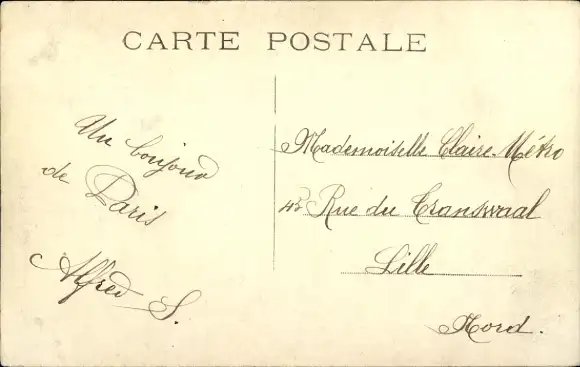 CARTE POSTALE
Un bonjour
de Paris
Alfred S.
Mademoiselle Claire Métro
45 Rue du Transwaal
Lille
Nord.